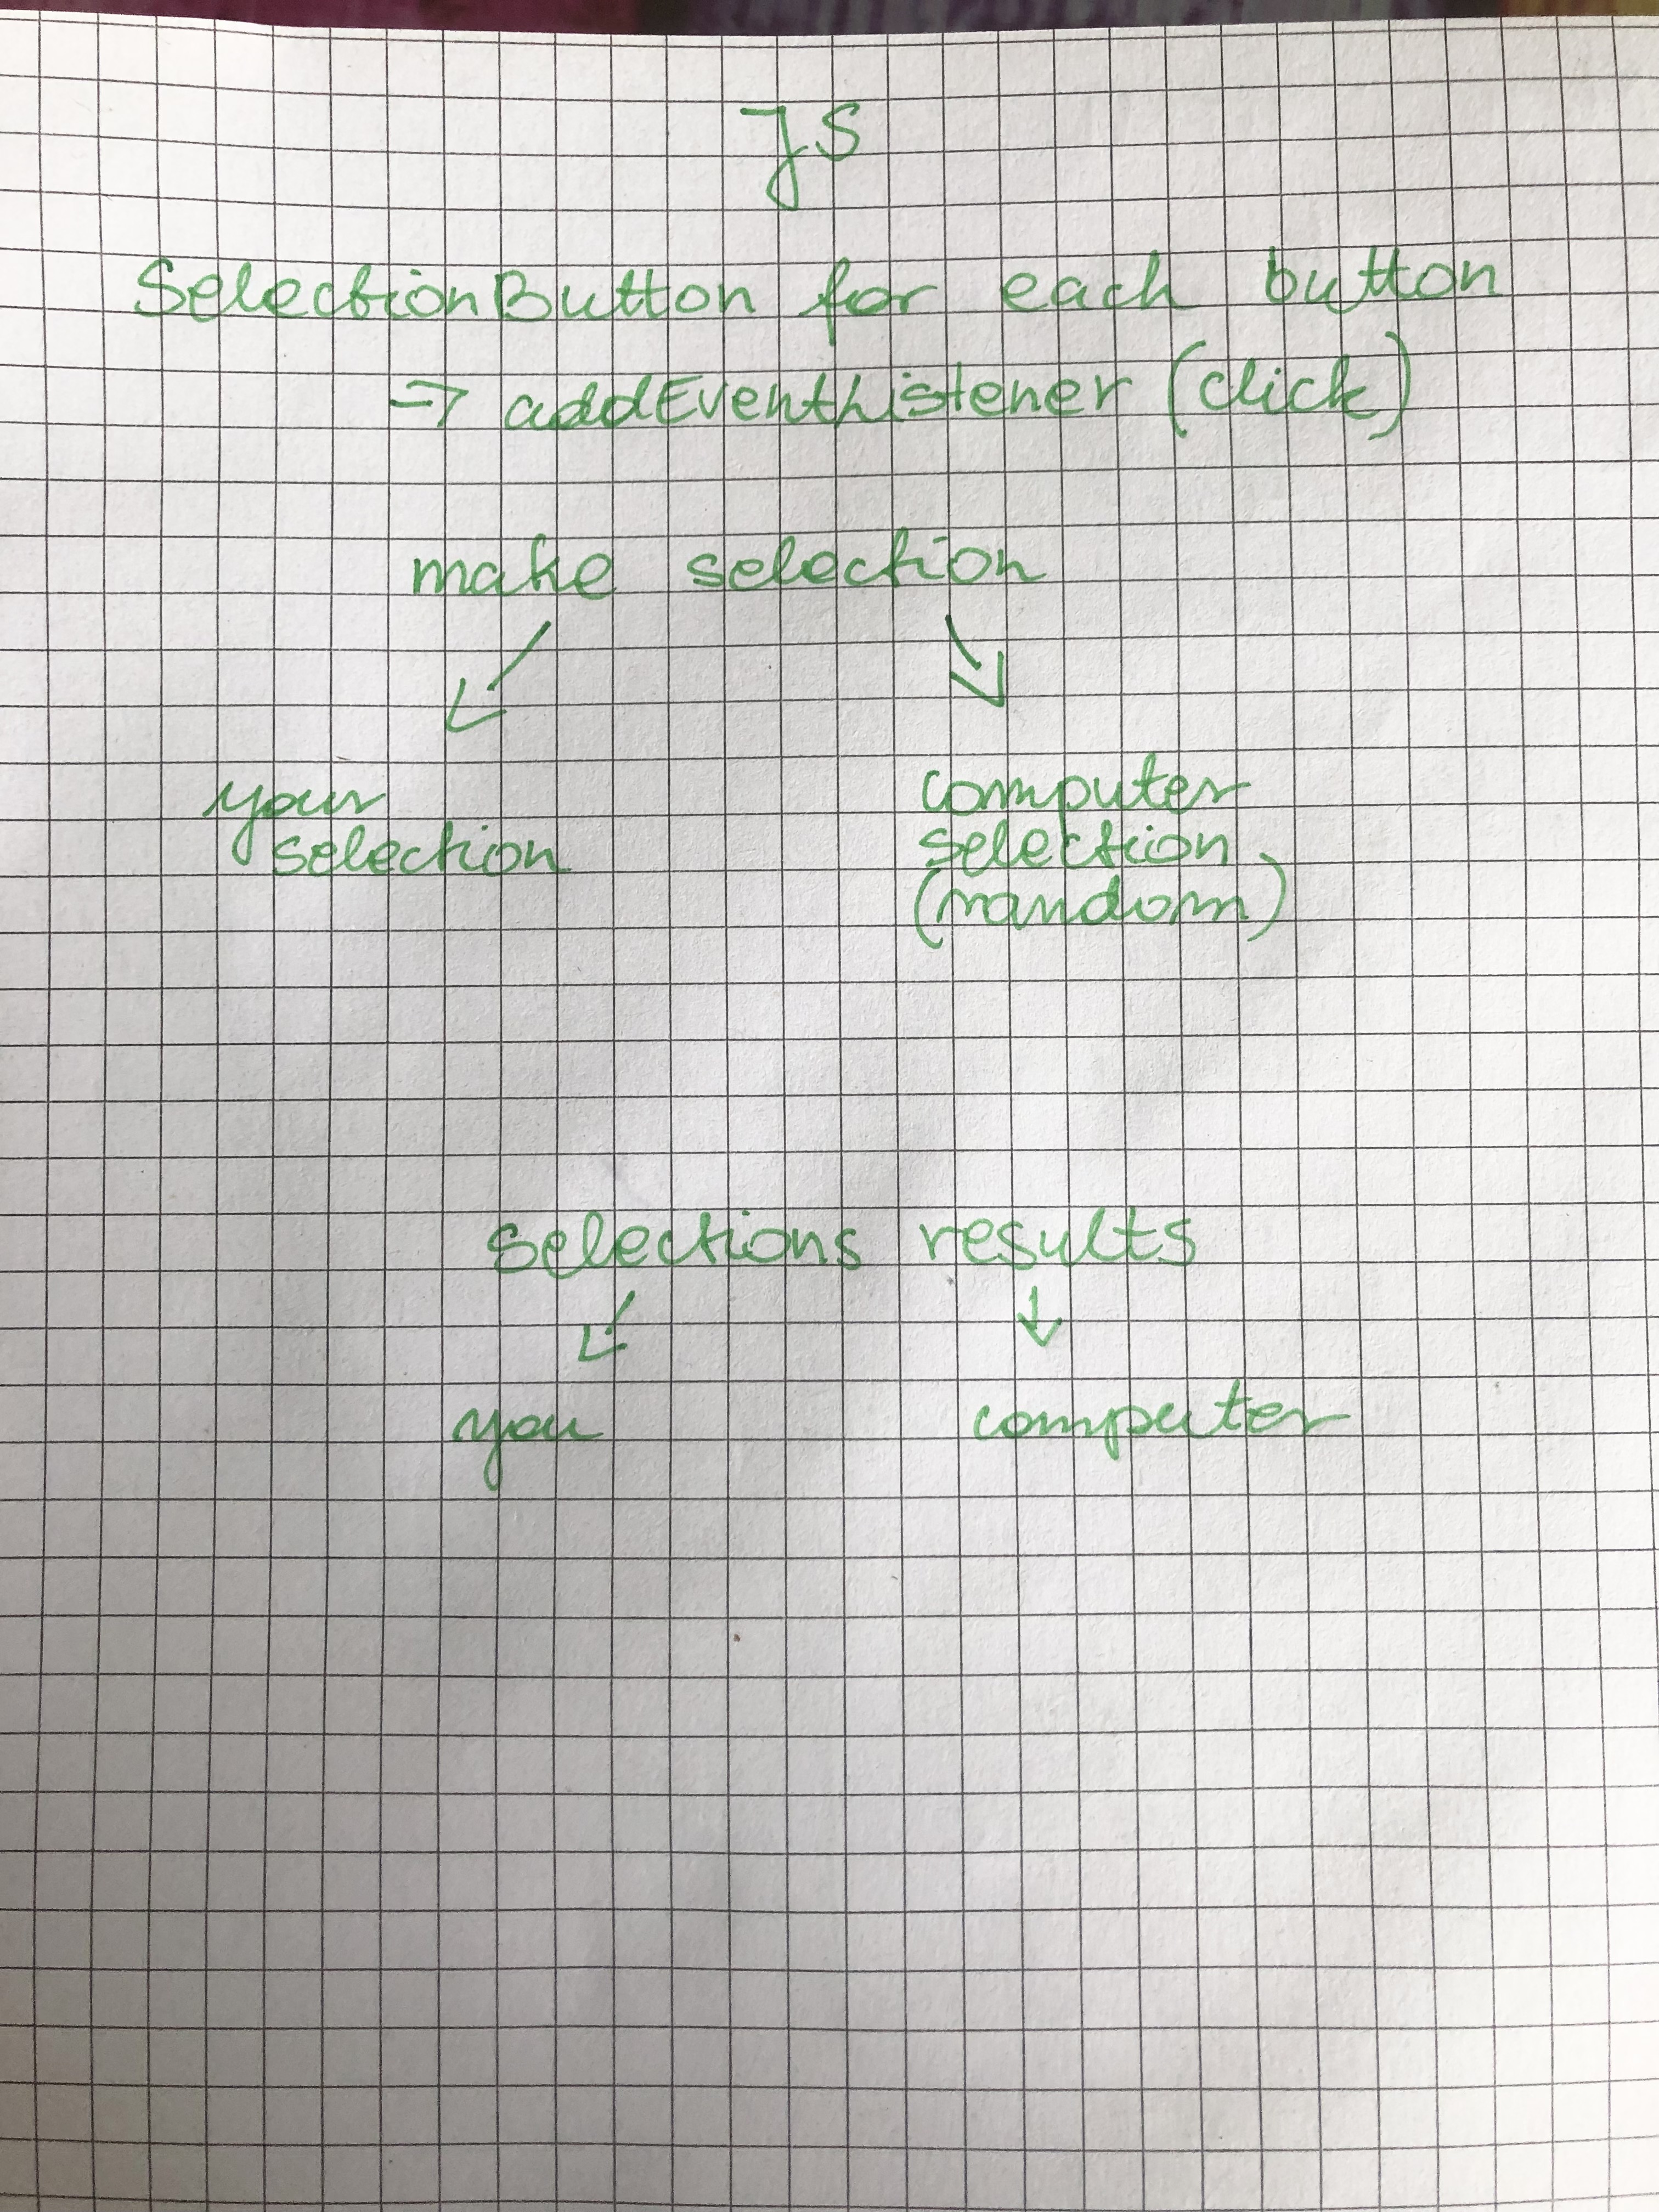 JS
SelectionButton for each button
=> addEventListener (click)
make selection
your
selection
computer
selection
(random)
selections results
you
computer